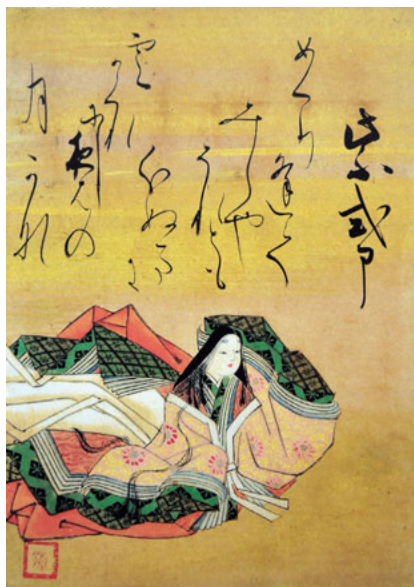 紫式部
めくり逢て
みしや
それとも
わかぬまに
雲かくれ
にし夜はの
月かな